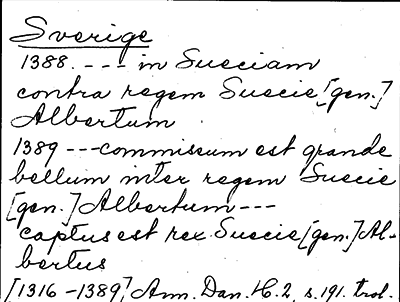 Sverige
1388. --- in Sueciam
contra regem Suecie [gen.]
Albertum
1389 --- commissum est grande
bellum inter regem Suecie
[gen.] Albertum ---
captus est rex Suecie [gen.] Al-
bertus
[1316-1389] Ann. Dan. H. 2, s. 191. trol.